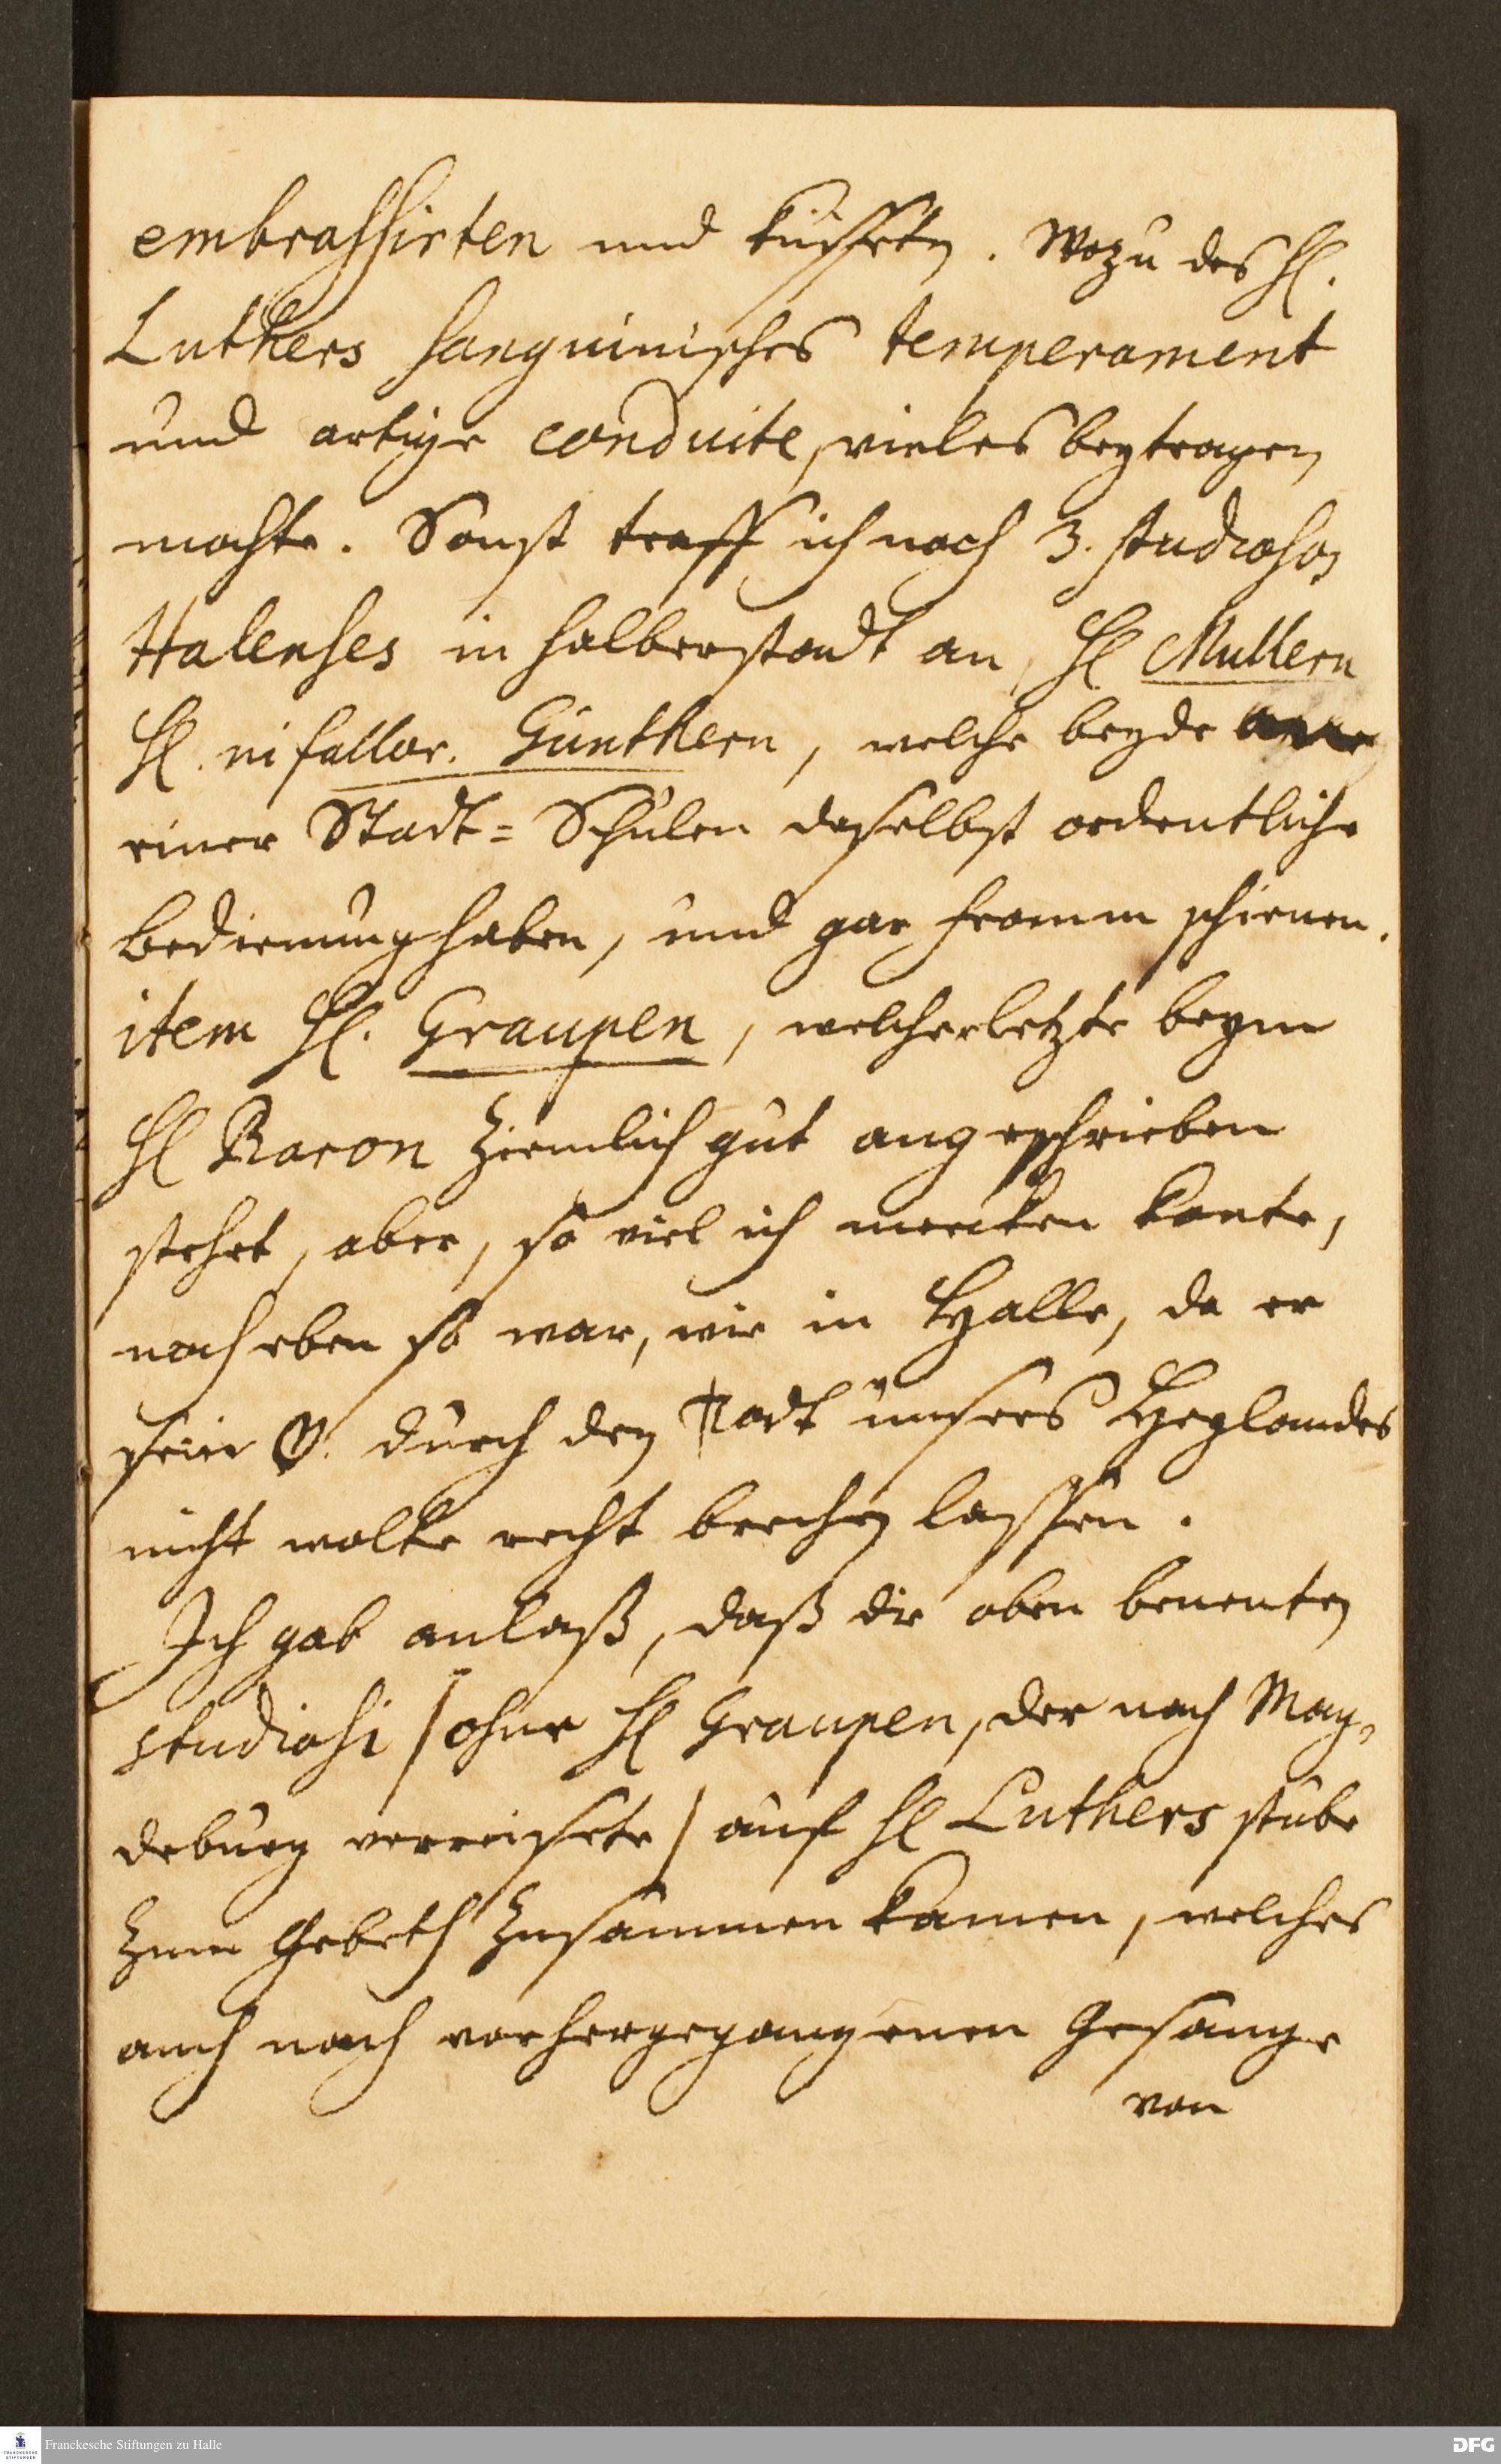 embrassirten und küsseten. Wozu des H.
Luthers sanguinisches temperament
und artige conduite, vieles beytragen
mochte. Sonst traff ich noch 3. studiosos
Halenses in Halberstadt an, H Mullern
H. ni fallor. Günthern, welche beyde
einer Stadt= Schulen daselbst ordentliche
Bedienung haben, und gar fromm schienen.
item H. Graupen, welcher letzte beym
H Baron ziemlich gut angeschrieben
stehet, aber, so viel ich mercken konte,
noch eben so war, wie in Halle, da er
sein durch den Todt unsers Heylandes
nicht wolte recht brechen lassen.
Ich gab anlaß, daß die oben benenten
studiosi / ohne H Graupen, der nach Mag=
deburg verreisete / auf H Luthers stube
zum Gebeth zusammen kamen, welches
auch nach vorhergegangenen Gesange
von
Franckesche Stiftungen zu Halle
DFG